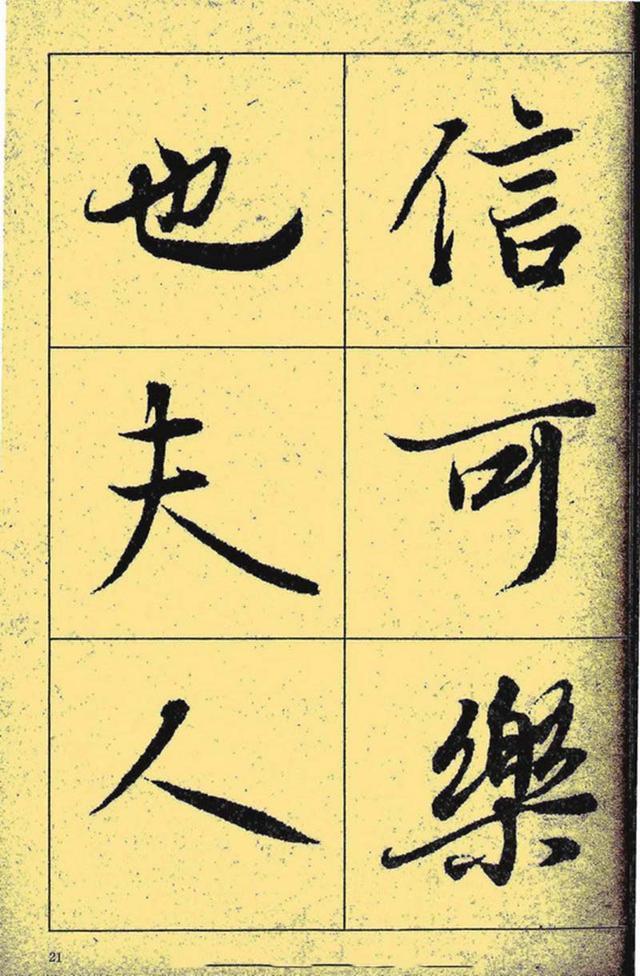 信可樂
也夫人
21